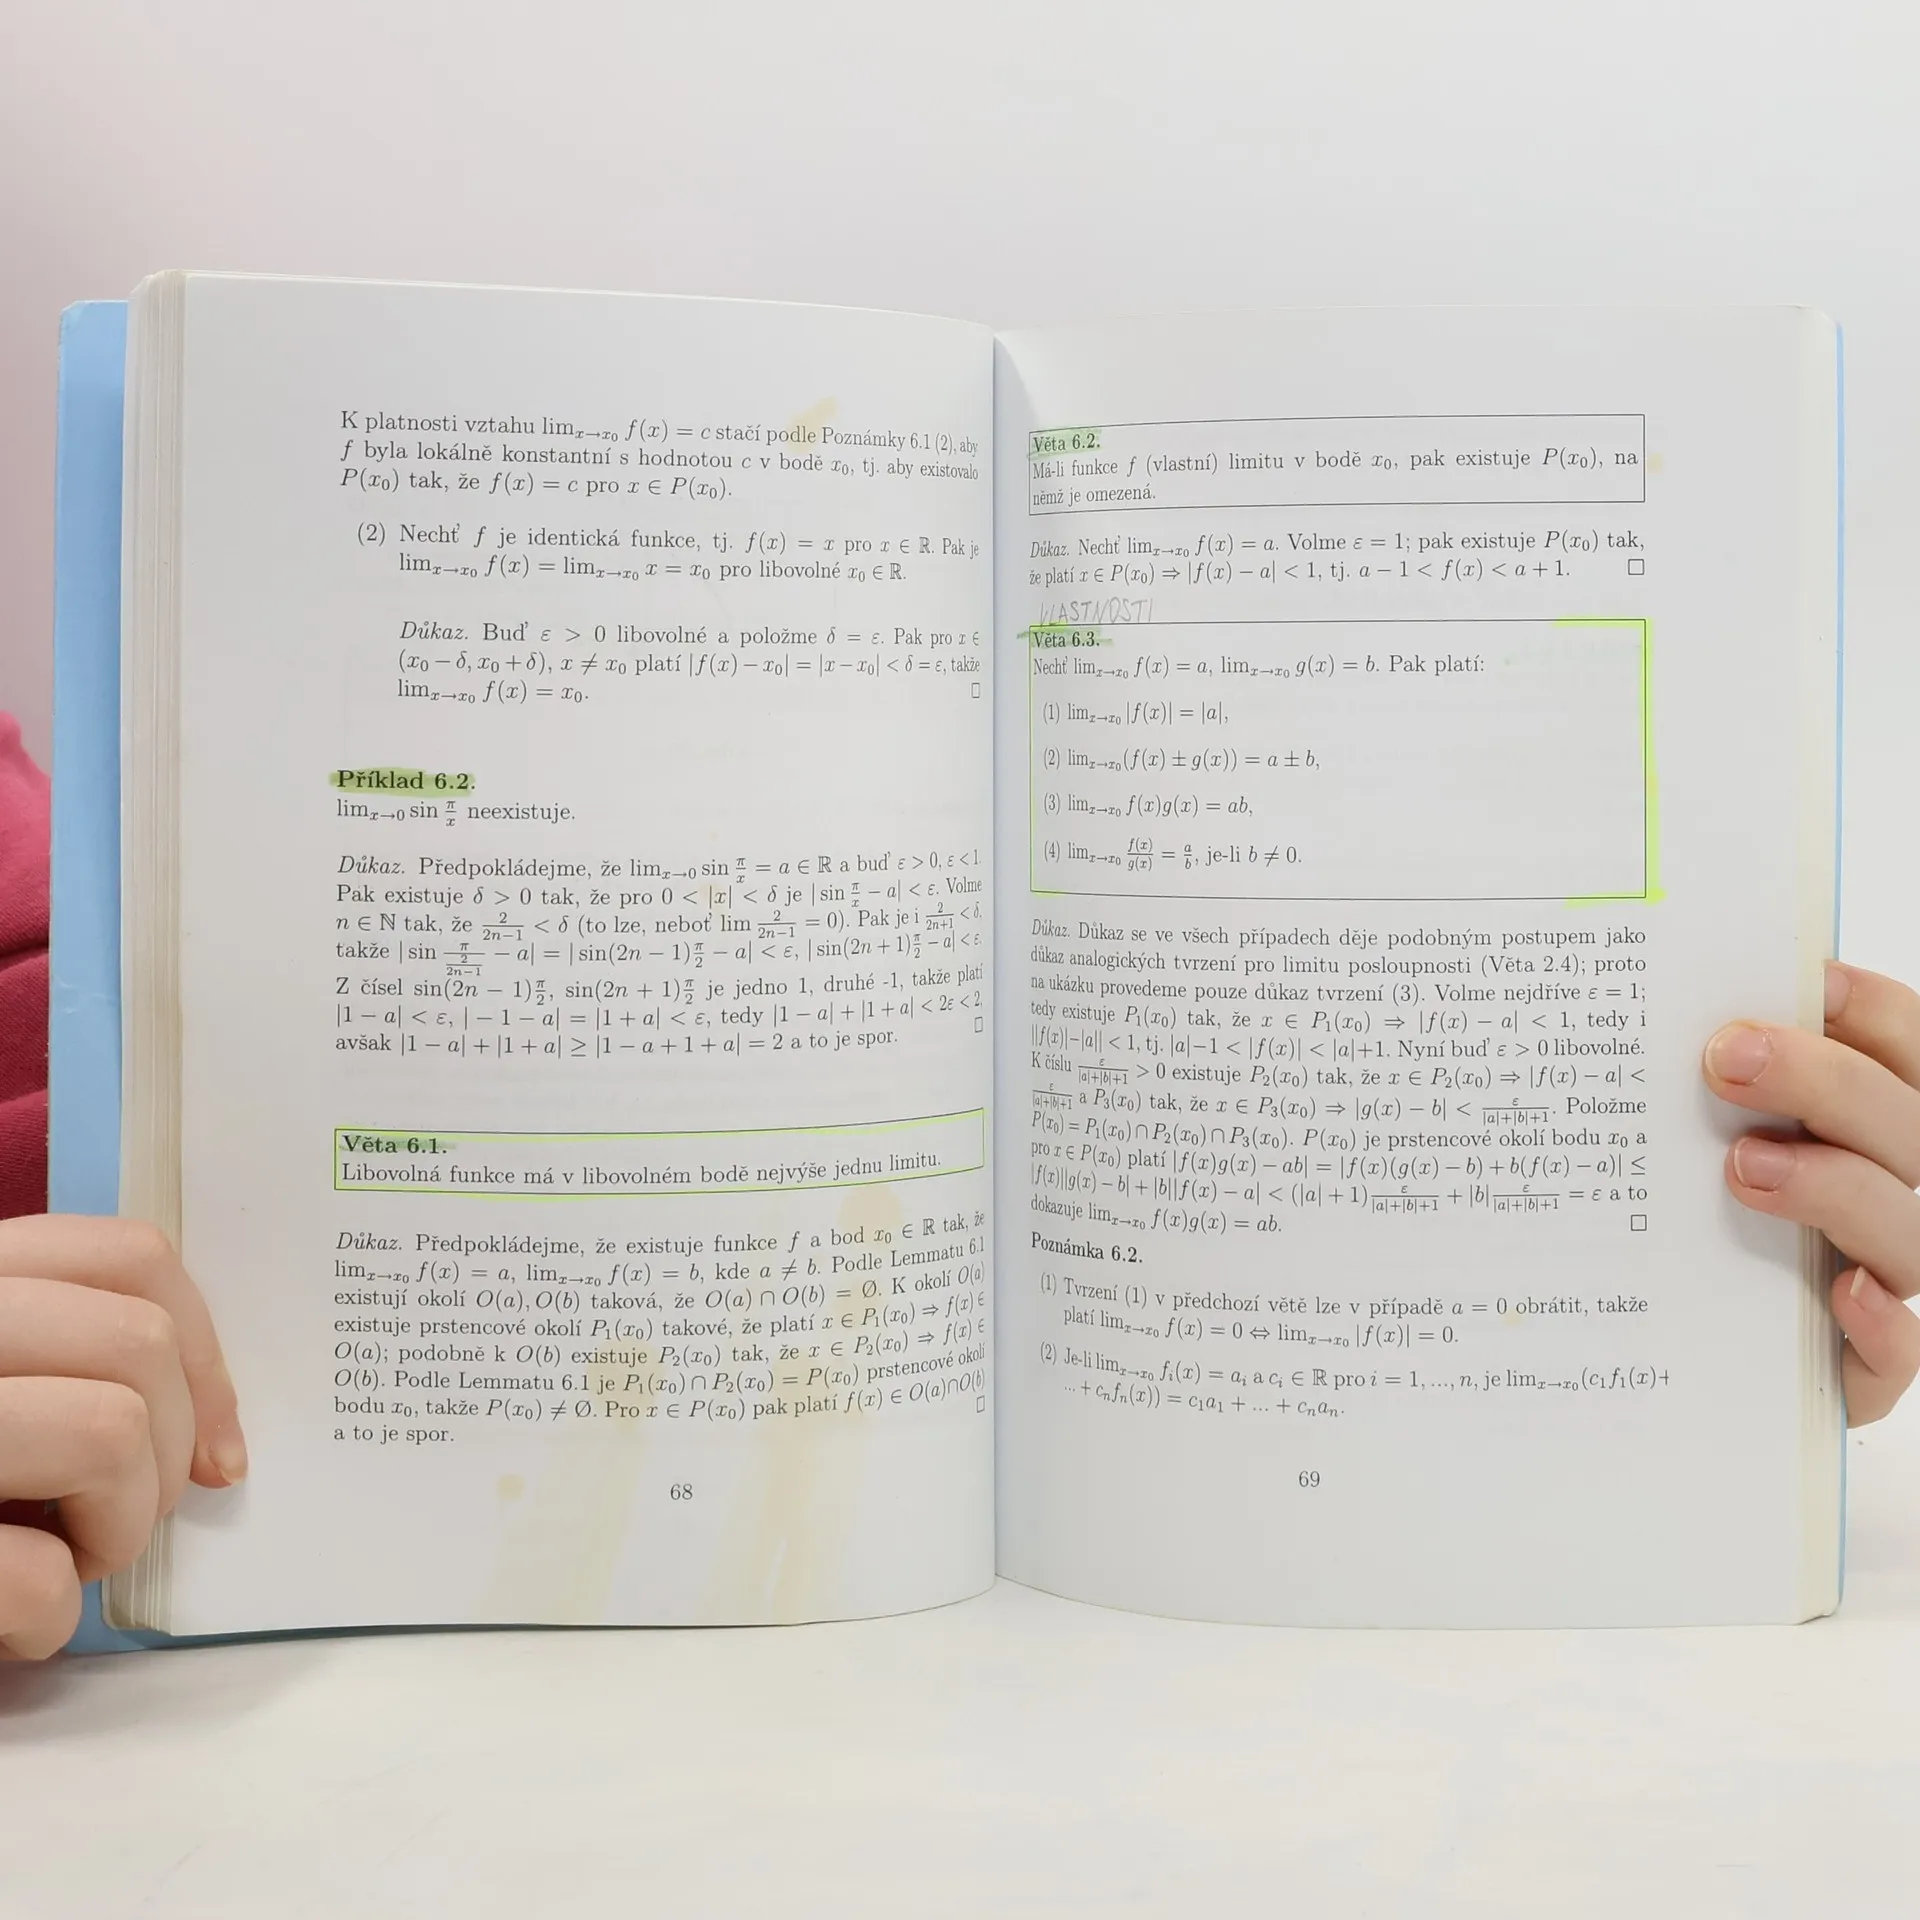 K platnosti vztahu lim_{x→x₀} f(x) = c stačí podle Poznámky 6.1 (2), aby
f byla lokálně konstantní s hodnotou c v bodě x₀, tj. aby existovalo
P(x₀) tak, že f(x) = c pro x ∈ P(x₀).
(2) Nechť f je identická funkce, tj. f(x) = x pro x ∈ ℝ. Pak je
lim_{x→x₀} f(x) = lim_{x→x₀} x = x₀ pro libovolné x₀ ∈ ℝ.
Důkaz. Buď ε > 0 libovolné a položme δ = ε. Pak pro x ∈
(x₀ − δ, x₀ + δ), x ≠ x₀ platí |f(x) − x₀| = |x − x₀| < δ = ε, takže
lim_{x→x₀} f(x) = x₀. □
Příklad 6.2.
lim_{x→0} sin π/x neexistuje.
Důkaz. Předpokládejme, že lim_{x→0} sin π/x = a ∈ ℝ a buď ε > 0, ε < 1.
Pak existuje δ > 0 tak, že pro 0 < |x| < δ je | sin π/x − a| < ε. Volme
n ∈ ℕ tak, že 2/(2n−1) < δ (to lze, neboť lim 2/(2n−1) = 0). Pak je i 2/(2n+1) < δ,
takže | sin π/(2/(2n−1)) − a| = | sin(2n − 1)π/2 − a| < ε, | sin(2n + 1)π/2 − a| < ε.
Z čísel sin(2n − 1)π/2, sin(2n + 1)π/2 je jedno 1, druhé -1, takže platí
|1 − a| < ε, | − 1 − a| = |1 + a| < ε, tedy |1 − a| + |1 + a| < 2ε < 2,
avšak |1 − a| + |1 + a| ≥ |1 − a + 1 + a| = 2 a to je spor. □
Věta 6.1.
Libovolná funkce má v libovolném bodě nejvýše jednu limitu.
Důkaz. Předpokládejme, že existuje funkce f a bod x₀ ∈ ℝ tak, že
lim_{x→x₀} f(x) = a, lim_{x→x₀} f(x) = b, kde a ≠ b. Podle Lemmatu 6.1
existují okolí O(a), O(b) taková, že O(a) ∩ O(b) = Ø. K okolí O(a)
existuje prstencové okolí P₁(x₀) takové, že platí x ∈ P₁(x₀) ⇒ f(x) ∈
O(a); podobně k O(b) existuje P₂(x₀) tak, že x ∈ P₂(x₀) ⇒ f(x) ∈
O(b). Podle Lemmatu 6.1 je P₁(x₀) ∩ P₂(x₀) = P(x₀) prstencové okolí
bodu x₀, takže P(x₀) ≠ Ø. Pro x ∈ P(x₀) pak platí f(x) ∈ O(a)∩O(b)
a to je spor. □
68
Věta 6.2.
Má-li funkce f (vlastní) limitu v bodě x₀, pak existuje P(x₀), na
němž je omezená.
Důkaz. Nechť lim_{x→x₀} f(x) = a. Volme ε = 1; pak existuje P(x₀) tak,
že platí x ∈ P(x₀) ⇒ |f(x) − a| < 1, tj. a − 1 < f(x) < a + 1. □
VLASTNOSTI
Věta 6.3.
Nechť lim_{x→x₀} f(x) = a, lim_{x→x₀} g(x) = b. Pak platí:
(1) lim_{x→x₀} |f(x)| = |a|,
(2) lim_{x→x₀}(f(x) ± g(x)) = a ± b,
(3) lim_{x→x₀} f(x)g(x) = ab,
(4) lim_{x→x₀} f(x)/g(x) = a/b, je-li b ≠ 0.
Důkaz. Důkaz se ve všech případech děje podobným postupem jako
důkaz analogických tvrzení pro limitu posloupnosti (Věta 2.4); proto
na ukázku provedeme pouze důkaz tvrzení (3). Volme nejdříve ε = 1;
tedy existuje P₁(x₀) tak, že x ∈ P₁(x₀) ⇒ |f(x) − a| < 1, tedy i
||f(x)|−|a|| < 1, tj. |a|−1 < |f(x)| < |a|+1. Nyní buď ε > 0 libovolné.
K číslu ε/(|a|+|b|+1) > 0 existuje P₂(x₀) tak, že x ∈ P₂(x₀) ⇒ |f(x) − a| <
ε/(|a|+|b|+1) a P₃(x₀) tak, že x ∈ P₃(x₀) ⇒ |g(x) − b| < ε/(|a|+|b|+1). Položme
P(x₀) = P₁(x₀)∩P₂(x₀)∩P₃(x₀). P(x₀) je prstencové okolí bodu x₀ a
pro x ∈ P(x₀) platí |f(x)g(x) − ab| = |f(x)(g(x) − b) + b(f(x) − a)| ≤
|f(x)||g(x) − b| + |b||f(x) − a| < (|a| + 1) ε/(|a|+|b|+1) + |b| ε/(|a|+|b|+1) = ε a to
dokazuje lim_{x→x₀} f(x)g(x) = ab. □
Poznámka 6.2.
(1) Tvrzení (1) v předchozí větě lze v případě a = 0 obrátit, takže
platí lim_{x→x₀} f(x) = 0 ⇔ lim_{x→x₀} |f(x)| = 0.
(2) Je-li lim_{x→x₀} fᵢ(x) = aᵢ a cᵢ ∈ ℝ pro i = 1, ..., n, je lim_{x→x₀}(c₁f₁(x)+
... + cₙfₙ(x)) = c₁a₁ + ... + cₙaₙ.
69